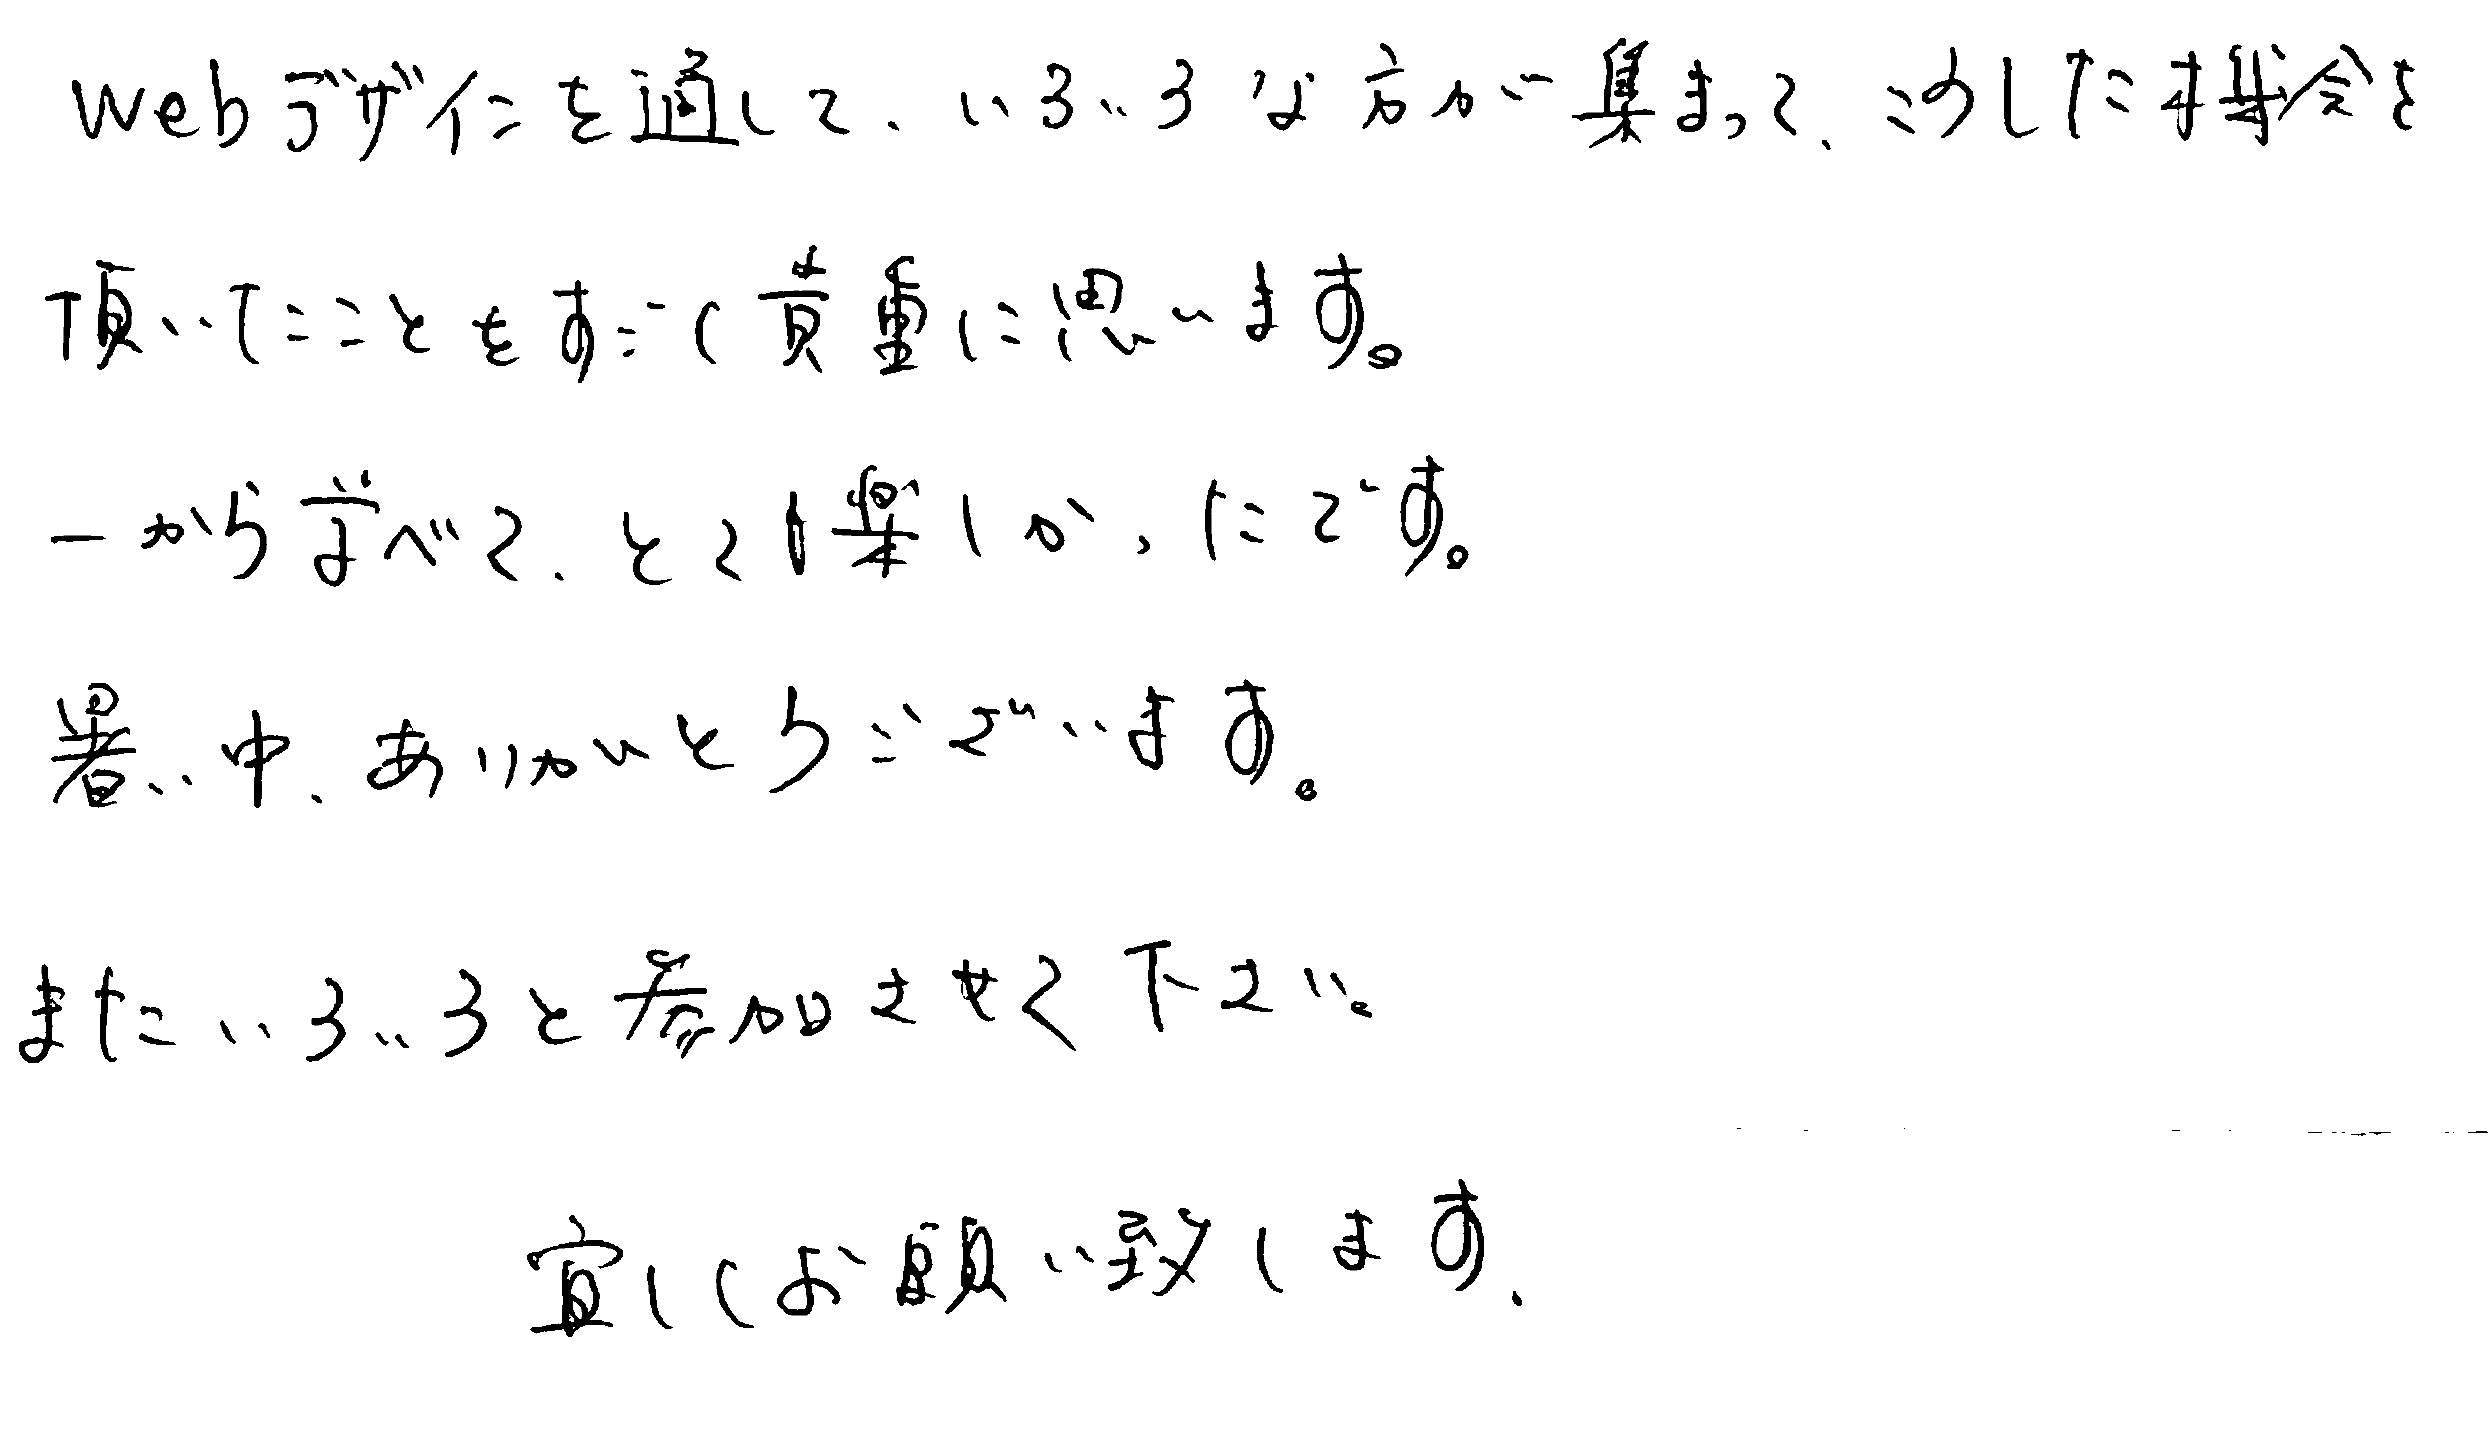 Webデザインを通して、いろいろな方が集まって、こうした機会を
頂いたことをすごく貴重に思います。
一から学べて、とても楽しかったです。
暑い中、ありがとうございます。
またいろいろと参加させて下さい。
宜しくお願い致します。